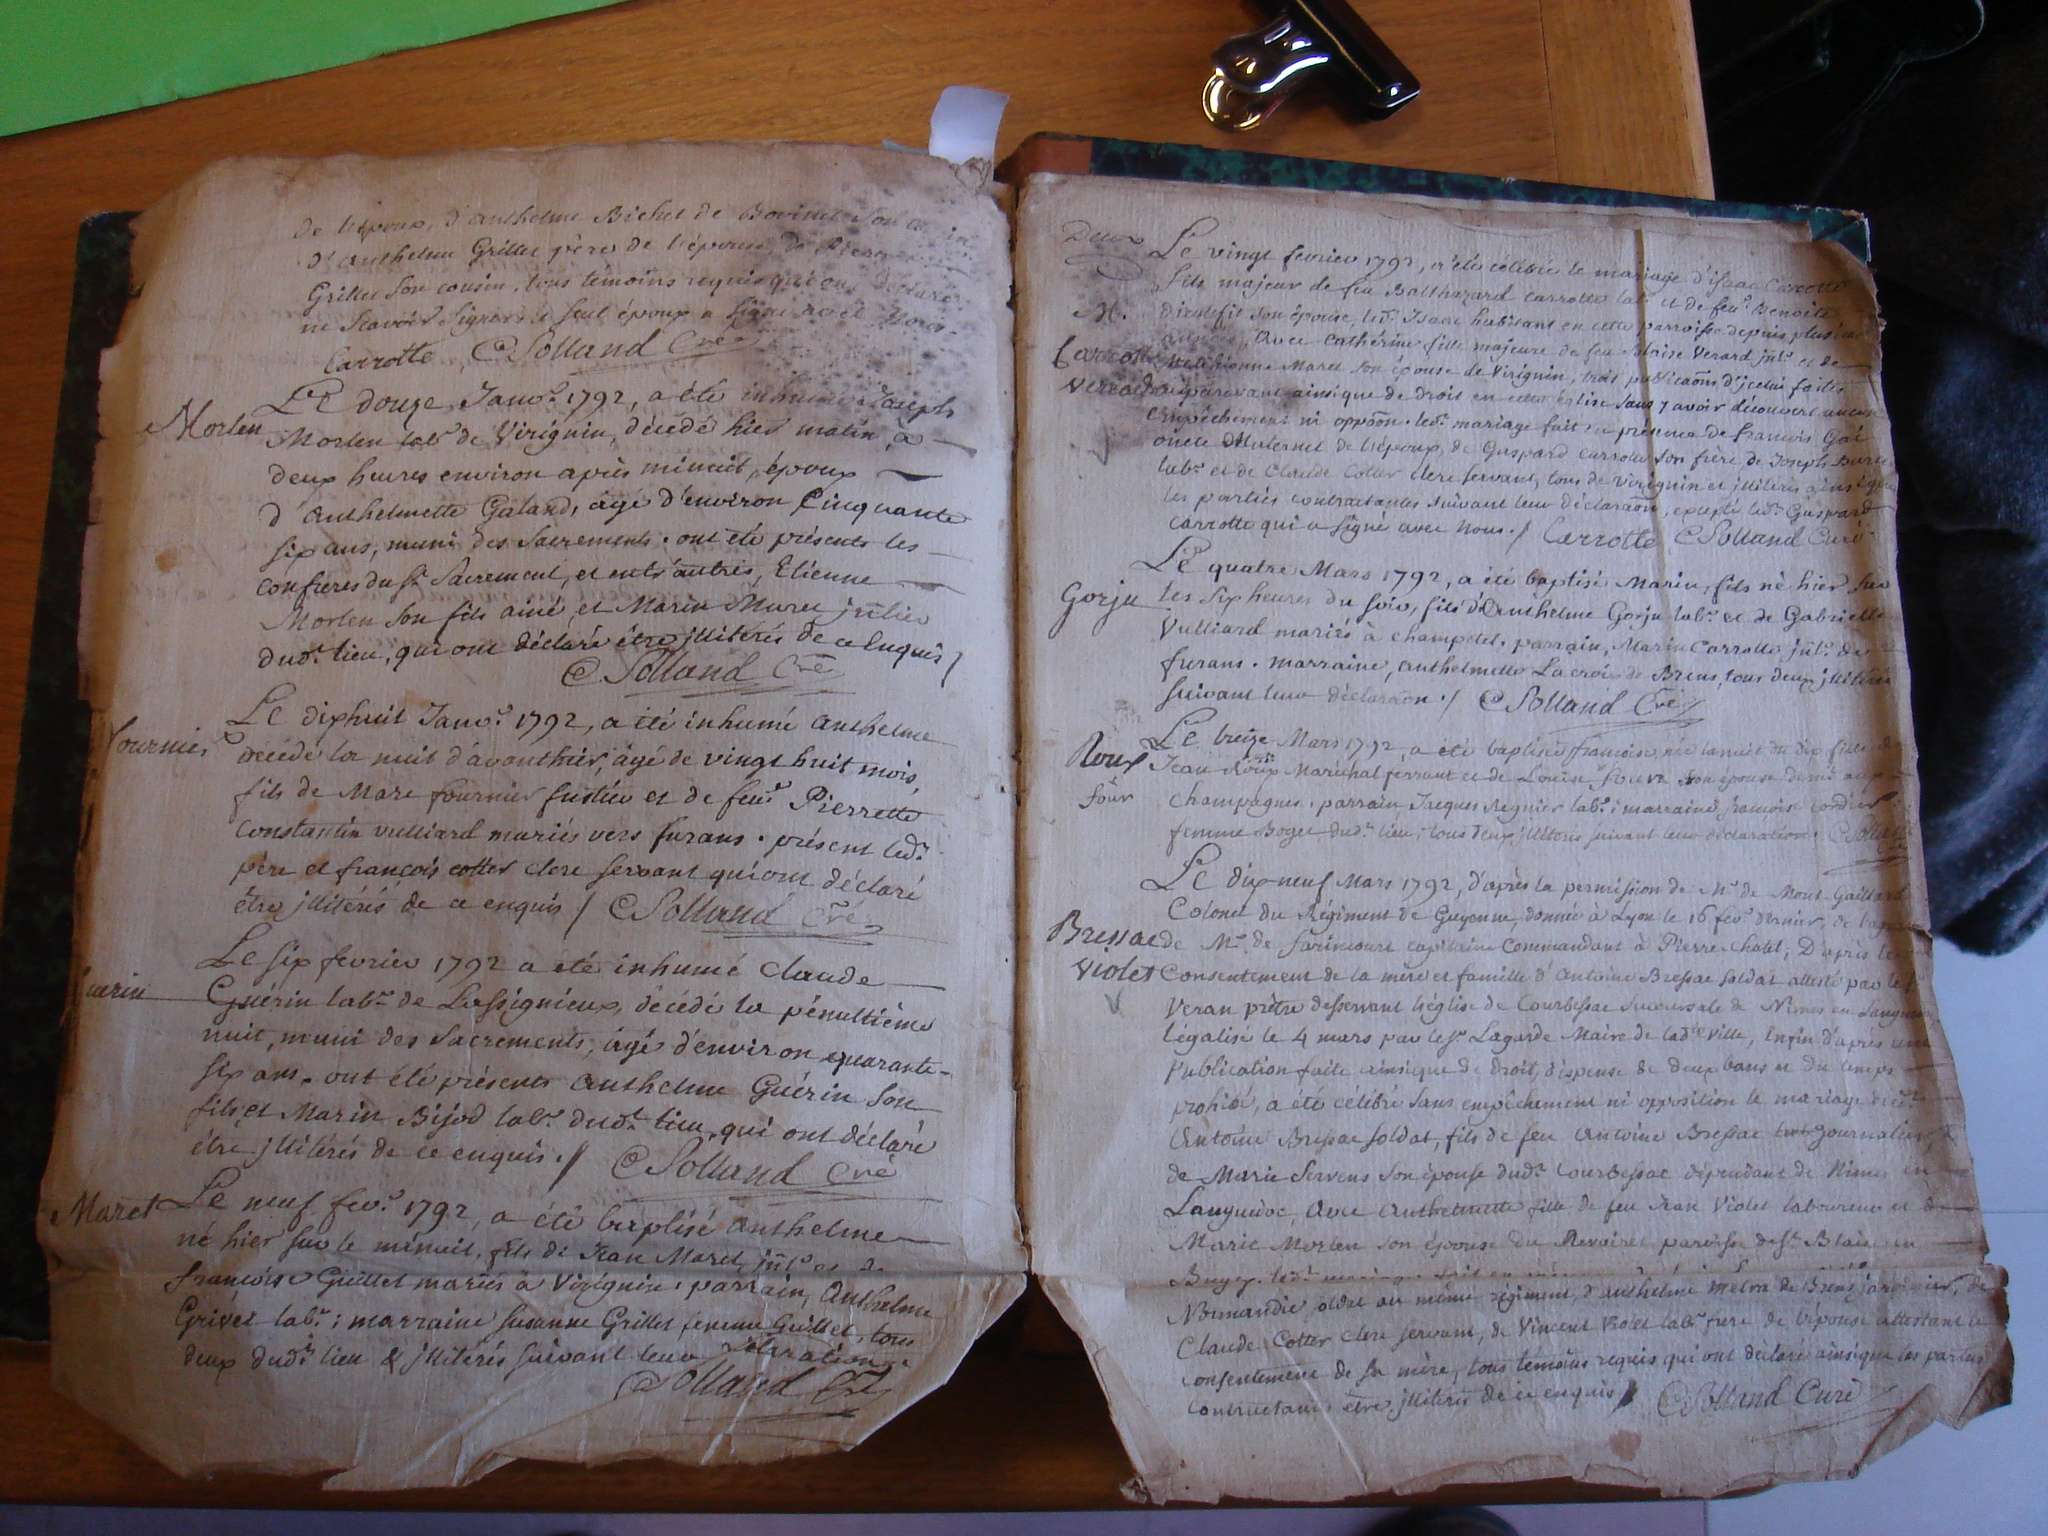 de l'époux, d'anthelme Bichet de Bovinel son cousin
d'anthelme Grillet père de l'épouse, de
Grillet son cousin, tous témoins requis qui ont déclaré
ne scavoir signer, le seul époux a signé avec Nous.
Carrotte CSolland Cré
Morten
Le douze Janv.r 1792, a été inhumé Joseph
Morten lab.r de Virignin, décédé hier matin à
deux heures environ après minuit, époux
d'anthelmette Galand, âgé d'environ Cinquante
six ans, muni des Sacrements. ont été présents les
confreres du S.t Sacrement, et entr'autres, Etienne
Morten son fils ainé, et Marin Maret
dud.t lieu, qui ont déclaré être jllitérés de ce Enquis /
CSolland Cré
fournier
Le dixhuit Janv.r 1792, a été inhumé anthelme
décédé la nuit d'avanthier, âgé de vingt huit mois,
fils de Marc fournier fustier et de feu.e Pierrette
Constantin vulliard mariés vers furans. présent led.t
père et françois cotter clerc servant qui ont déclaré
être jllitérés de ce enquis / CSolland Cré
Guerin
Le six fevrier 1792 a été inhumé claude
Guérin lab.r de Lassignieux, décédé la pénultième
nuit, muni des Sacrements, âgé d'environ quarante-
six ans. ont été présents anthelme Guérin son
fils, et Marin Bijod lab.r dud.t lieu, qui ont déclaré
être jllitérés de ce enquis ./ CSolland Cré
Maret
Le neuf fev.r 1792, a été baptisé anthelme
né hier sur le minuit, fils de Jean Maret, jnl.r et de
françoise Guillet mariés à Virignin. parrain, Anthelme
Grivet lab.r ; marraine susanne Grillet femme Guillet, tous
deux dud.t lieu & jllitérés suivant leur déclaration.
CSolland Cré
Deux
M.
Carrotte
Verard
Le vingt fevrier 1792, a été célébré le mariage d'isaac Carrotte
fils majeur de feu Balthazard carrotte lab.r et de feu.e Benoite
Dieulefit son épouse, led.t Isaac habitant en cette parroisse depuis plusieurs
années, Avec catherine fille majeure de feu Verard jnl.r et de
Maret son épouse de Virignin, trois publicaõns d'jcelui faites
auparavant ainsi que de droit en cette Eglise sans y avoir découvert aucun
Empêchement ni oppõon. led.t mariage fait en présence de françois
oncle Maternel de l'époux, de Gaspard carrotte son frère, de Joseph
lab.r et de Claude Cotter clerc servant, tous de virignin et jllitérés ainsi que
les parties contractantes suivant leur déclaraõn, excepté led.t Gaspard
carrotte qui a signé avec Nous ./ Carrotte CSolland Curé
Gorju
Le quatre Mars 1792, a été baptisé Marin, fils né hier sur
les six heures du soir, fils d'Anthelme Gorju lab.r et de Gabrielle
Vulliard mariés à champtel. parrain, Marin Carrotte jnl.r de
furans. marraine, anthelmette Lacroix de Brens, tous deux jllitérés
suivant leur déclaraõn ./ CSolland Cré
Roux
four
Le treize Mars 1792, a été baptisée françoise, née la nuit du dix, fille de
Jean Roux Maréchal ferrant et de Louise son épouse
champagnes. parrain Jacques Regnier lab.r ; marraine françoise cordier
femme Boget dud.t lieu ; tous deux jllitérés suivant leur déclaration. CSolland
Bressac
Violet
Le dix-neuf Mars 1792, d'après la permission de M.r de Mont-Gaillard
Colonel du Régiment de Guyenne, donnée à Lyon le 16 fev.r dernier, de
de M.r de farincourt capitaine commandant à Pierre-chatel, D'après le
Consentement de la mère et famille d'Antoine Bressac soldat attesté par le S.r
Veran prêtre desservant l'église de Courbessac succursale de Nimes en Languedoc,
légalisé le 4 mars par le S.r Lagarde Maire de lad.te ville, Enfin d'après une
Publication faite ainsi que de droit, dispense de deux bans et du temps
prohibé, a été célébré sans empêchement ni opposition le mariage
Antoine Bressac soldat, fils de feu Antoine Bressac journalier, &
de Marie Servens son épouse dud.t Courbessac dépendant de Nimes en
Languedoc, Avec Anthelmette fille de feu Jean Violet laboureur et de
Marie Morten son épouse du Revoiret paroisse de S.t Blaise en
Bugey. led.t mariage fait en
Normandie soldat au même régiment, d'anthelme de Brens jardinier, de
Claude Cotter clerc servant, de Vincent Violet lab.r frere de l'épouse attestant le
consentement de sa mère, tous témoins requis qui ont déclaré ainsi que les parties
contractantes être jllitérés de ce enquis / CSolland Curé